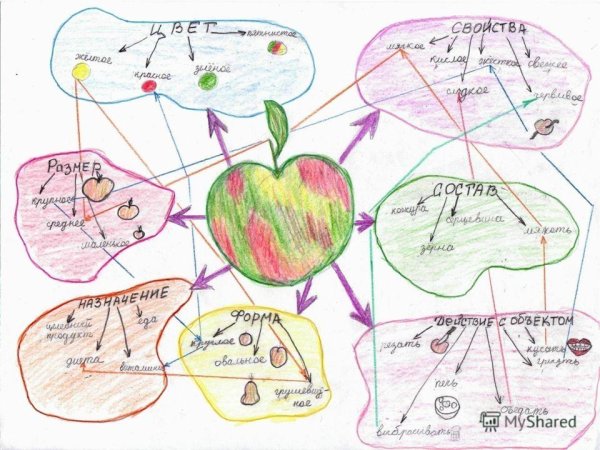 ЦВЕТ
жёлтое
красное
зелёное
пятнистое
СВОЙСТВА
мягкое
кислое
жёсткое
свежее
сладкое
червивое
РАЗМЕР
крупное
среднее
маленькое
СОСТАВ
кожура
сердцевина
мякоть
зёрна
НАЗНАЧЕНИЕ
целебный
продукт
еда
диета
витамины
ФОРМА
круглое
овальное
грушевид-
ное
ДЕЙСТВИЕ С ОБЪЕКТОМ
резать
кусать
грызть
печь
съедать
выбрасывать
MyShared